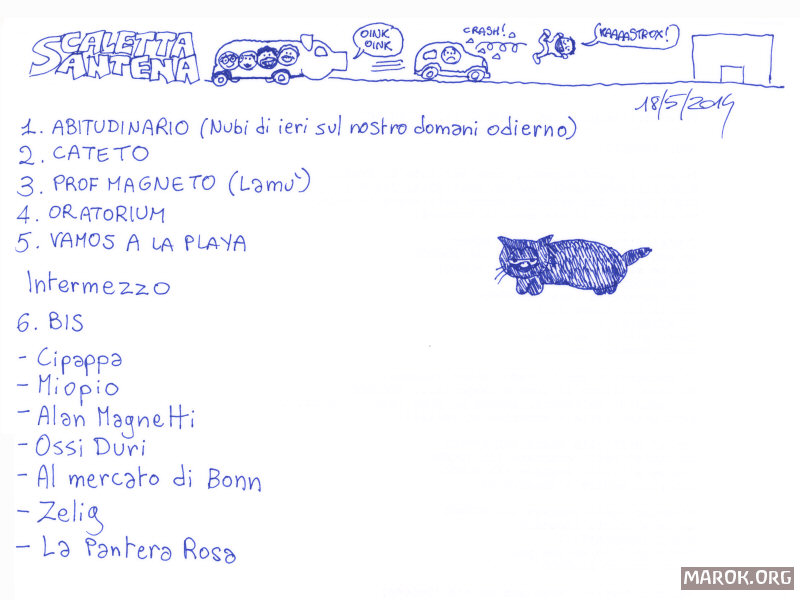 SCALETTA
SANTENA
OINK
OINK
CRASH!
KAAAASTROX!
18/5/2014
1. ABITUDINARIO (Nubi di ieri sul nostro domani odierno)
2. CATETO
3. PROF MAGNETO (Lamu')
4. ORATORIUM
5. VAMOS A LA PLAYA
Intermezzo
6. BIS
- Cipappa
- Miopio
- Alan Magnetti
- Ossi Duri
- Al mercato di Bonn
- Zelig
- La Pantera Rosa
MAROK.ORG